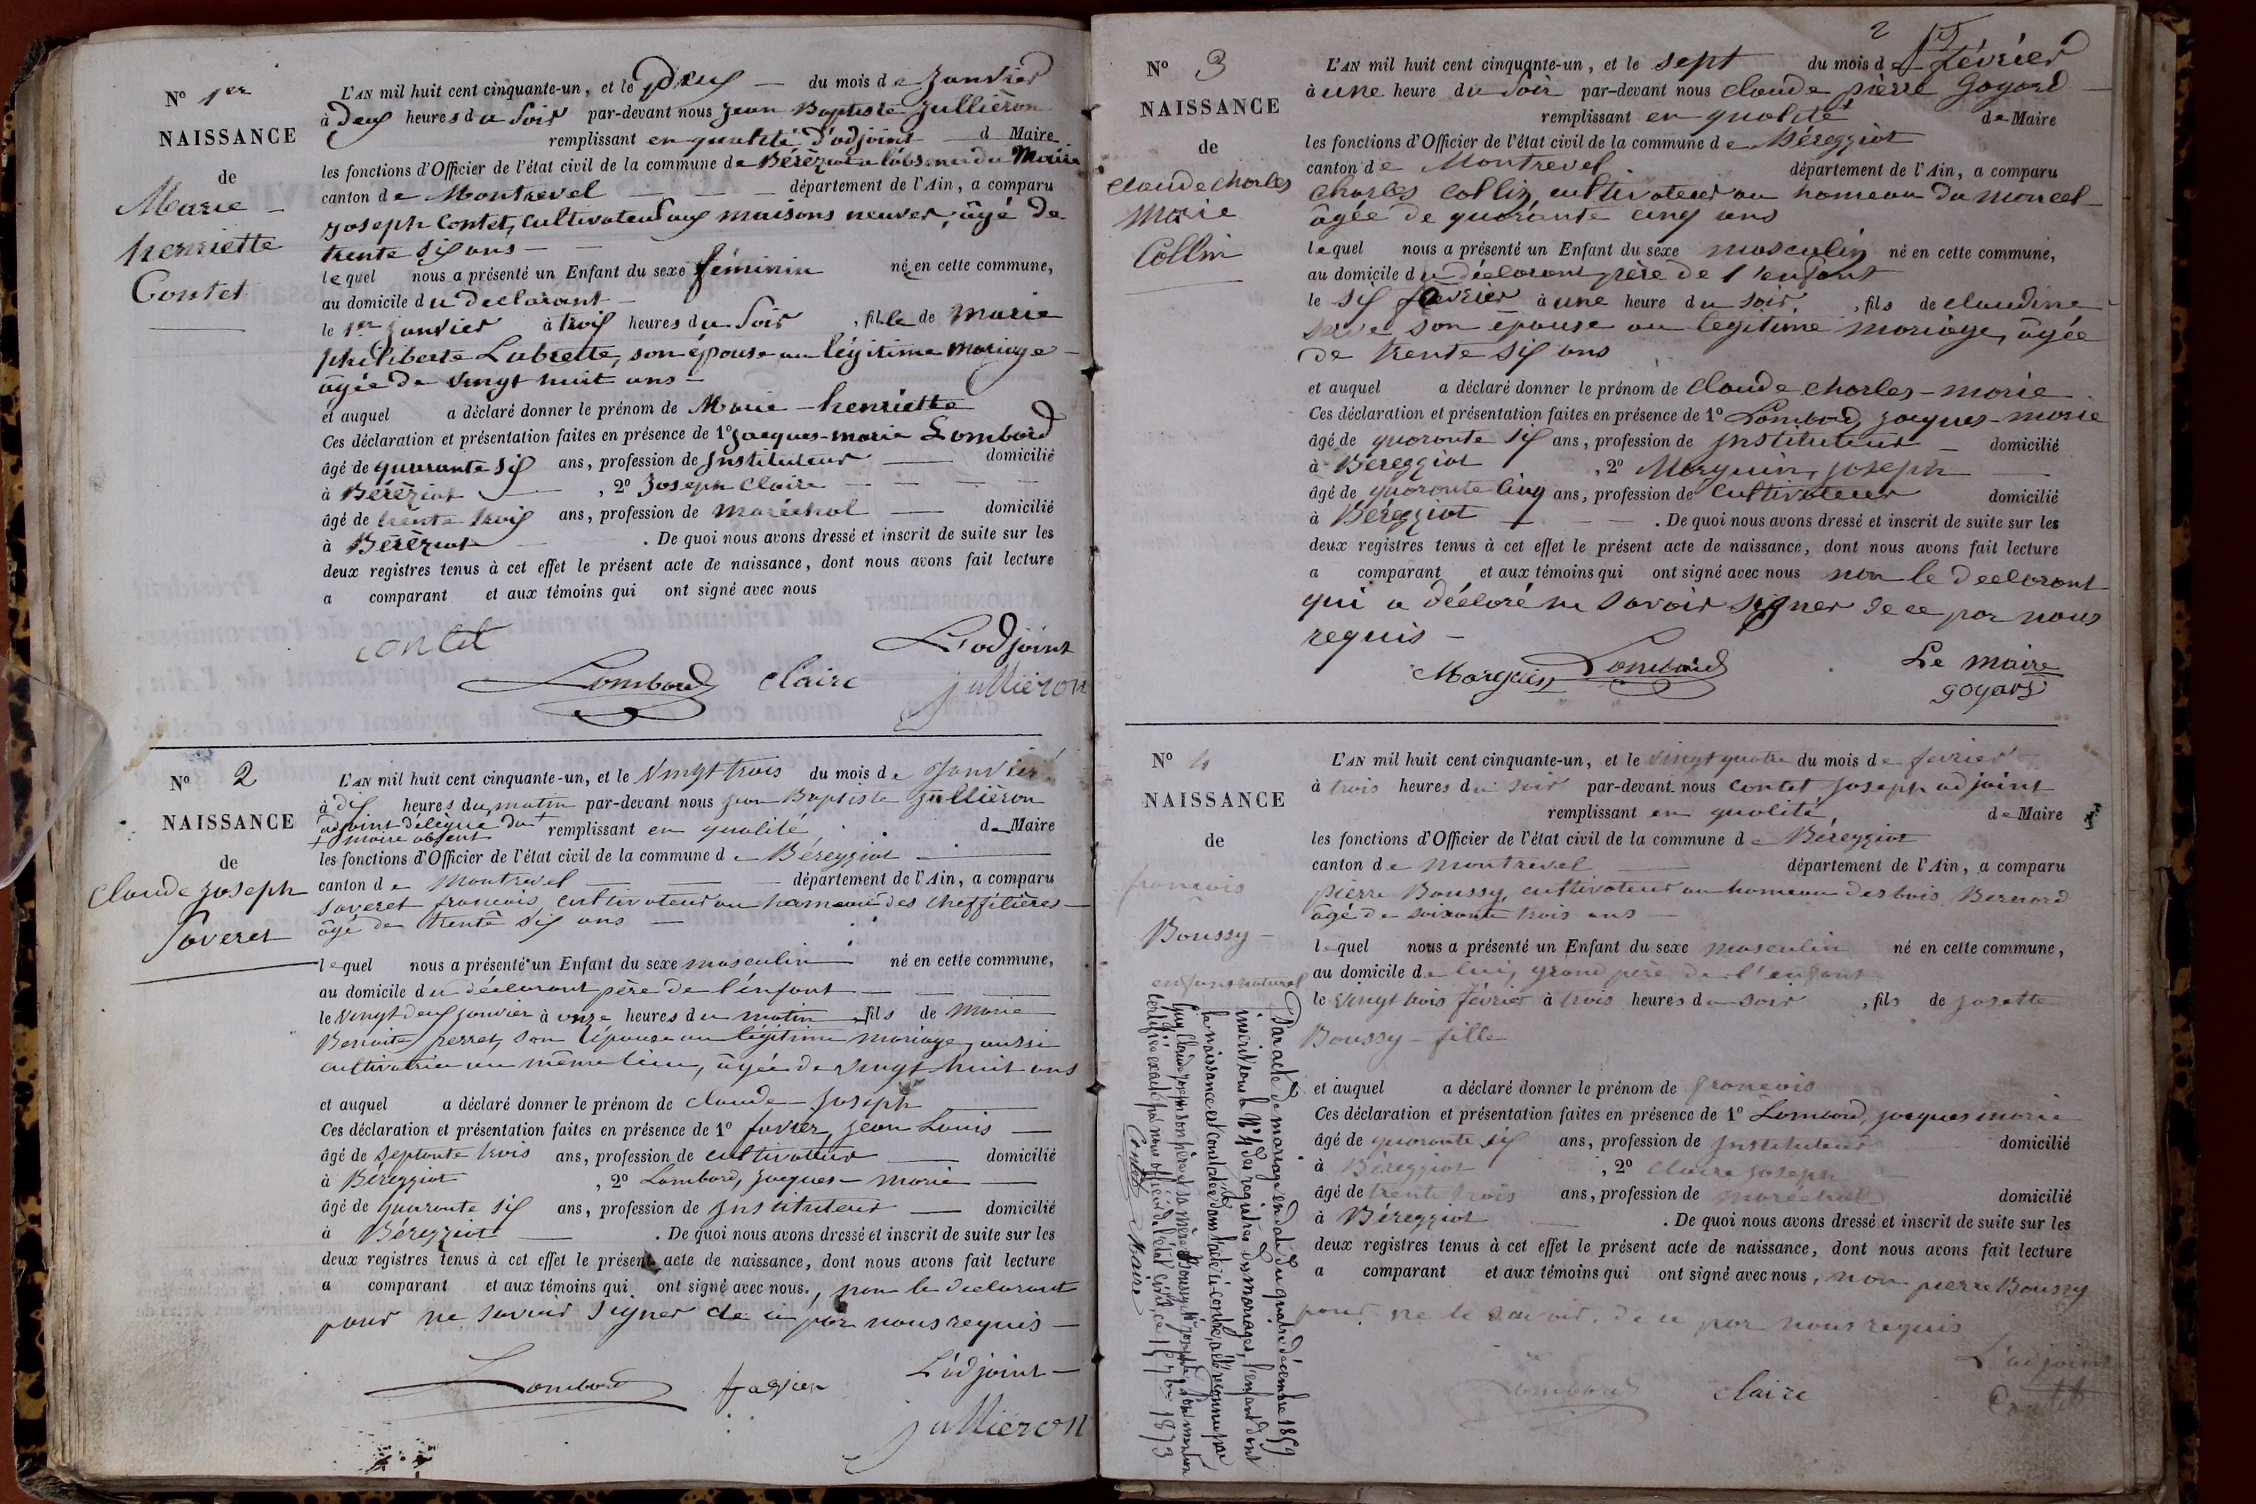 N° 1er
NAISSANCE
de
Marie
henriette
Contet
L'AN mil huit cent cinquante-un, et le deux — du mois de Janvier
à deux heures du Soir par-devant nous Jean Baptiste Jullièron
remplissant en qualité d'adjoint — d Maire
les fonctions d'Officier de l'état civil de la commune de Béréziat a l'absence du Maire
canton de Montrevel — département de l'Ain, a comparu
Joseph Contet, cultivateur aux maisons neuves, âgé de
trente six ans —
lequel nous a présenté un Enfant du sexe féminin née en cette commune,
au domicile du declarant —
le 1er Janvier à trois heures du Soir, fille de Marie
philiberte Labrette, son épouse au légitime mariage —
âgée de vingt huit ans —
et auquel a déclaré donner le prénom de Marie-henriette
Ces déclaration et présentation faites en présence de 1° Jacques-marie Lombard
âgé de quarante six ans, profession de Instituteur — domicilié
à Béréziat —, 2° Joseph Claire —
âgé de trente trois ans, profession de maréchal — domicilié
à Béréziat — . De quoi nous avons dressé et inscrit de suite sur les
deux registres tenus à cet effet le présent acte de naissance, dont nous avons fait lecture
a comparant et aux témoins qui ont signé avec nous
contet
L'adjoint
Lombard Claire Jullièron
N° 2
NAISSANCE
de
Claude Joseph
Saveret
L'AN mil huit cent cinquante-un, et le vingt trois du mois de Janvier
à dix heures du matin par-devant nous Jean Baptiste Jullièron
adjoint délégué du + remplissant en qualité de Maire
+ maire absent
les fonctions d'Officier de l'état civil de la commune de Béreyziat —
canton de Montrevel — département de l'Ain, a comparu
Saveret francois, cultivateur au hameau des Cheffilières —
âgé de trente six ans —
lequel nous a présenté un Enfant du sexe masculin né en cette commune,
au domicile du déclarant père de l'enfant —
le vingt deux Janvier à onze heures du matin, fils de Marie
Benoite perret, son épouse au légitime mariage, aussi
cultivatrice au même lieu, âgée de vingt huit ans
et auquel a déclaré donner le prénom de Claude Joseph —
Ces déclaration et présentation faites en présence de 1° favier, Jean Louis —
âgé de septante trois ans, profession de cultivateur — domicilié
à Béreyziat, 2° Lombard, Jacques-marie —
âgé de quarante six ans, profession de Instituteur — domicilié
à Béreyziat — . De quoi nous avons dressé et inscrit de suite sur les
deux registres tenus à cet effet le présent acte de naissance, dont nous avons fait lecture
a comparant et aux témoins qui ont signé avec nous, non le declarant
pour ne savoir signer de ce par nous requis —
L'adjoint —
Lombard favier
Jullièron
2
N° 3
NAISSANCE
de
Claude Charles
Marie
Collin
L'AN mil huit cent cinquante-un, et le sept du mois de février
à une heure du soir par-devant nous Claude pierre Goyard —
remplissant en qualité de Maire
les fonctions d'Officier de l'état civil de la commune de Béreyziat
canton de Montrevel département de l'Ain, a comparu
Charles Collin, cultivateur au hameau du moncel —
âgée de quarante cinq ans
lequel nous a présenté un Enfant du sexe masculin né en cette commune,
au domicile du déclarant père de l'enfant
le six février à une heure du soir, fils de claudine
son épouse au legitime mariage, âgée
de trente six ans
et auquel a déclaré donner le prénom de Claude Charles-marie
Ces déclaration et présentation faites en présence de 1° Lombard, Jacques-marie
âgé de quarante six ans, profession de Instituteur — domicilié
à Béreyziat, 2° Marguin, Joseph —
âgé de quarante cinq ans, profession de cultivateur domicilié
à Béreyziat — . De quoi nous avons dressé et inscrit de suite sur les
deux registres tenus à cet effet le présent acte de naissance, dont nous avons fait lecture
a comparant et aux témoins qui ont signé avec nous non le declarant
qui a déclaré ne savoir signer de ce par nous
requis —
Marguin Lombard Le maire
goyard
N° 4
NAISSANCE
de
francois
Boussy —
enfant naturel
L'AN mil huit cent cinquante-un, et le vingt quatre du mois de fevrier
à trois heures du soir par-devant nous Contet Joseph adjoint
remplissant en qualité de Maire
les fonctions d'Officier de l'état civil de la commune de Béreyziat
canton de Montrevel — département de l'Ain, a comparu
pierre Boussy, cultivateur au hameau des bois Bernard
âgé de soixante trois ans —
lequel nous a présenté un Enfant du sexe masculin né en cette commune,
au domicile de lui, grand père de l'enfant
le vingt trois février à trois heures du soir, fils de Josette
Boussy — fille
et auquel a déclaré donner le prénom de francois
Ces déclaration et présentation faites en présence de 1° Lombard, Jacques marie
âgé de quarante six ans, profession de Instituteur domicilié
à Béreyziat, 2° Claire Joseph
âgé de trente trois ans, profession de maréchal domicilié
à Béreyziat — . De quoi nous avons dressé et inscrit de suite sur les
deux registres tenus à cet effet le présent acte de naissance, dont nous avons fait lecture
a comparant et aux témoins qui ont signé avec nous, non pierre Boussy
pour ne le savoir, de ce par nous requis
L'adjoint
Lombard Claire Contet
Par acte de mariage en date du quatre décembre 1859
inscrit sous le N° 4 des registres des mariages, l'enfant dont
la naissance est constatée dans l'acte ci-contre, a été reconnu par
Claude Joseph son père et sa mère Boussy Josephte, dont mention
certifiée exacte par nous officier de l'état civil, ce 15 7bre 1873
Contet Maire